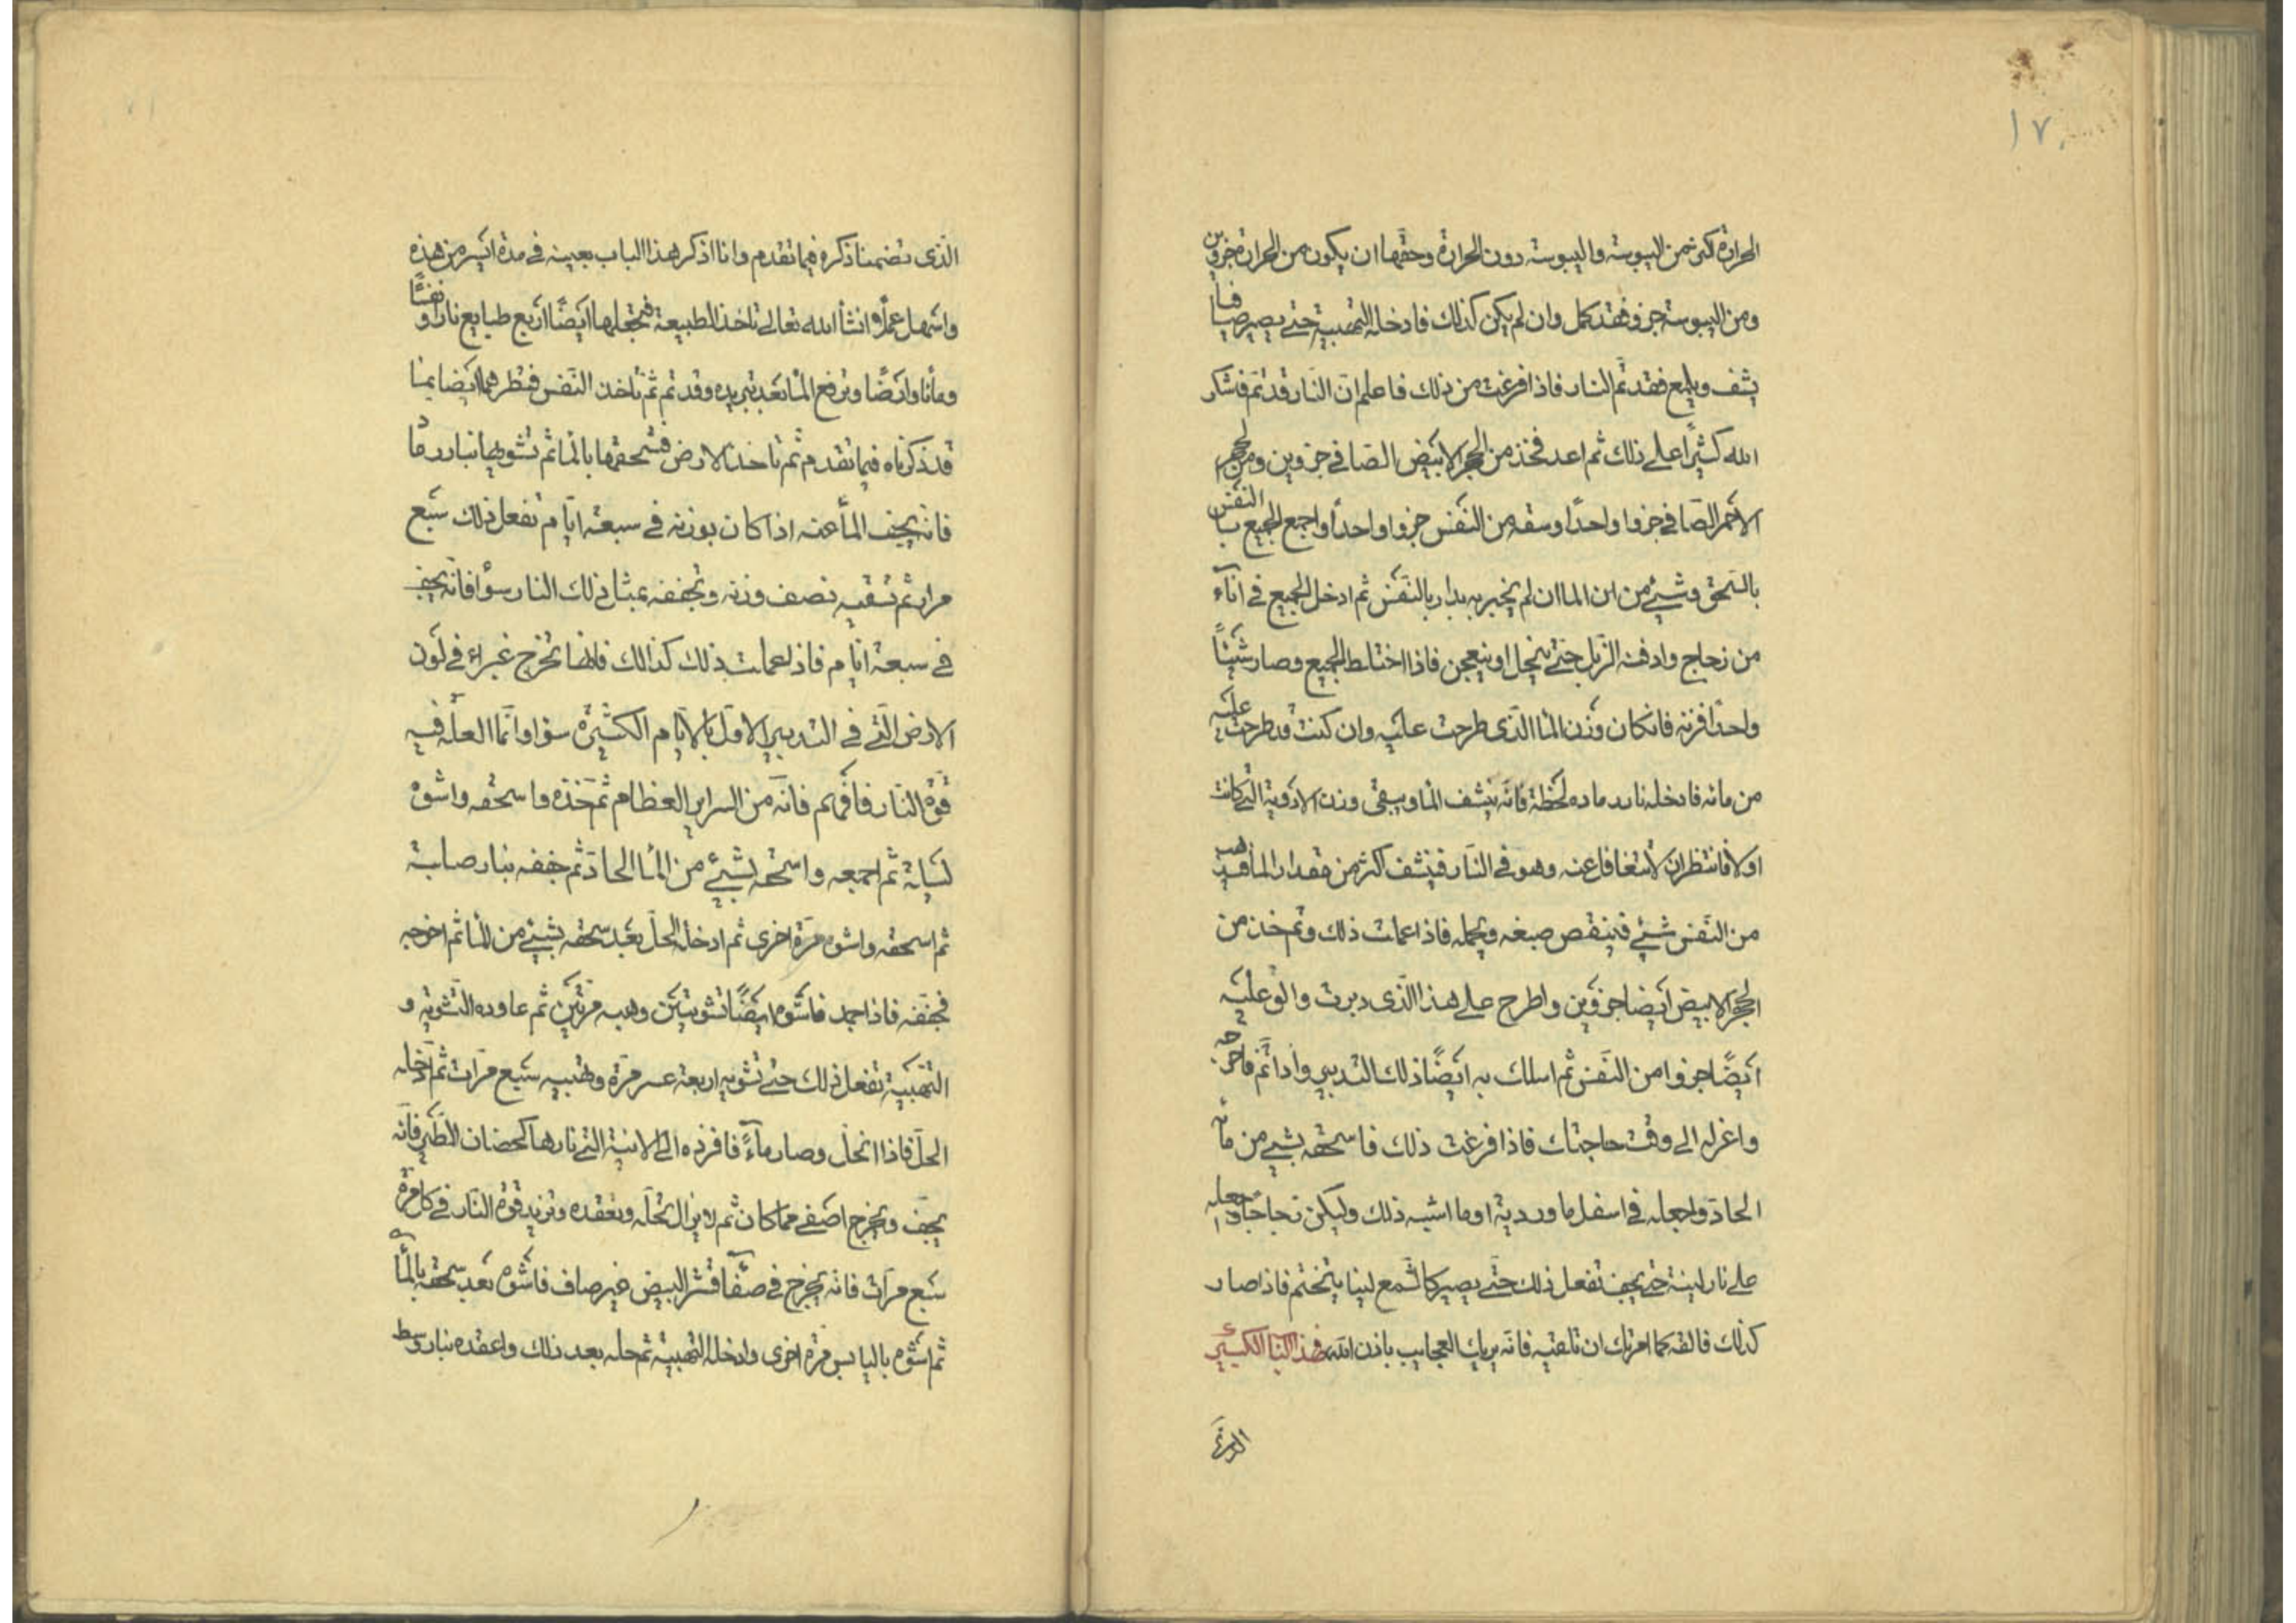 ١٧
الحرارة اكثر من اليبوسة واليبوسة دون الحرارة وحقها ان يكون من الحرارة جزوين
ومن اليبوسة جزو فقد كمل وان لم يكن كذلك فادخله التهبية حتى يصير صافيا
يشف ويلمع فقد تم النار فاذا فرغت من ذلك فاعلم ان النار قد تم فاشكر
الله كثيرًا على ذلك ثم اعد فخذ من الحجر الابيض الصافي جزوين ومن الحجر
الاحمر الصافي جزوا واحدًا وسقه من النفس جزوا واحدًا واجمع الجميع بالنفس
بالسحق وشيئ من الما ان لم بالنفس ثم ادخل الجميع في اناء
من زجاج وادفنه الزبل حتى ينحل او ينعجن فاذا اختلط الجميع وصار شيئًا
واحدًا فزنه فان كان وزن الما الذي طرحت عليه وان كنت قد طرحت عليه
من مائه فادخله نار رماده لحظة فانه ينشف الما ويبقى وزن الادوية التي كانت
اولا فانتظر ان لا تتغافل عنه وهو في النار فينشف اكثر من مقدار الما فيذهب
من النفس شيئ فينقص صبغه ويحمله فاذا عملت ذلك وتم خذ من
الحجر الابيض ايضا جزوين واطرح على هذا الذي دبرت والق عليه
ايضًا جزوا من النفس ثم اسلك به ايضًا ذلك التدبير واذا تم فاخرجه
واعزله الى وقت حاجتك فاذا فرغت ذلك فاسحقه بشيئ من مائه
الحاد واجعله في اسفل ماوردية او ما اشبه ذلك وليكن زجاجا واجعله
على نار لينة حتى يجف تفعل ذلك حتى يصير كالشمع لينا ينختم فاذا صار
كذلك فالقه كما امرتك ان تلقيه فانه يريك العجايب باذن الله فهذا الباب الكبير
الذي تضمنا ذكره فيما تقدم وانا اذكر هذا الباب بعينه في مدة ايسر من هذه
واسهل عملًا وان شأ الله تعالى تاخذ الطبيعة فتجعلها ايضًا اربع طبايع نارا ونفسًا
ومأ وارضًا وترفع المأ بعد تبريده وقد تم ثم تاخذ النفس فتطهرها ايضا بما
قد ذكرناه فيما تقدم ثم تاخذ الارض فتسحقها بالما ثم تشويها بنار رماد
فانه يجف المأ عنه اذا كان بوزنه في سبعة ايام تفعل ذلك سبع
مرار ثم تسقيه نصف وزنه وتجففه بمثل ذلك النار سوأ فانه يجف
في سبعة ايام فاذا عملت ذلك كذلك فانها تخرج غبراء في لون
الارض التي في التدبير الاول بالايام الكثيرة سوا وانما العلة فيه
قوة النار فافهم فانه من السراير العظام ثم خذه فاسحقه واشوه
ثم اجمعه واسحقه بشيئ من المأ الحاد ثم جففه بنار صلبة
ثم اسحقه واشوه مرة اخرى ثم ادخله الحل بعد سحقه بشيئ من الما ثم اخرجه
فجففه فاذا جمد فاشوه ايضًا تشويتين وهبه مرتين ثم عاوده التشوية و
التهبية تفعل ذلك حتى تشويه اربعة عشر مرة وتهبيه سبع مرات ثم ادخله
الحل فاذا انحل وصار ماءً فافرده الى الانية التي نارها كحضان الطير فانه
يجف ويخرج اصفى مما كان ثم لا يزال تحله وتعقده وتزيد قوة النار في كل مرة
سبع مرات فانه يخرج في صفأ قشر البيض غير صاف فاشوه بعد سحقه بالمأ
ثم اشوه باليابس مرة اخرى وادخله التهبية ثم حله بعد ذلك واعقده بنار وسط